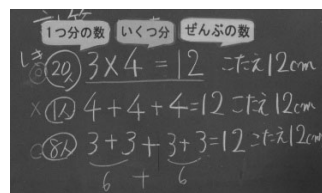 1つ分の数 いくつ分 ぜんぶの数
しき
20人 3×4=12 こたえ12cm
× 1人 4+4+4=12 こたえ12cm
8人 3+3+3+3=12 こたえ12cm
6 + 6